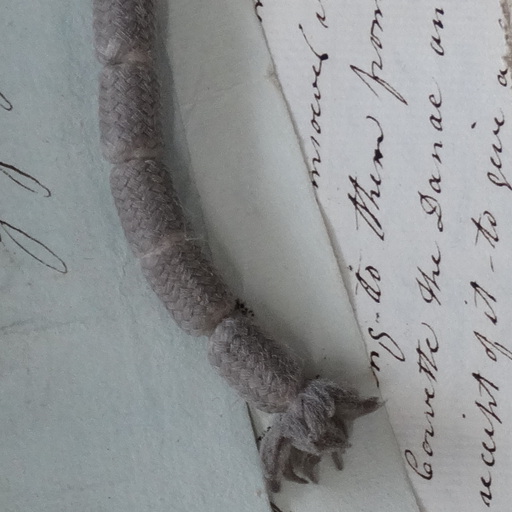 answer a
ng-to them from
Corvette the Danae an
receipt of it - to give a